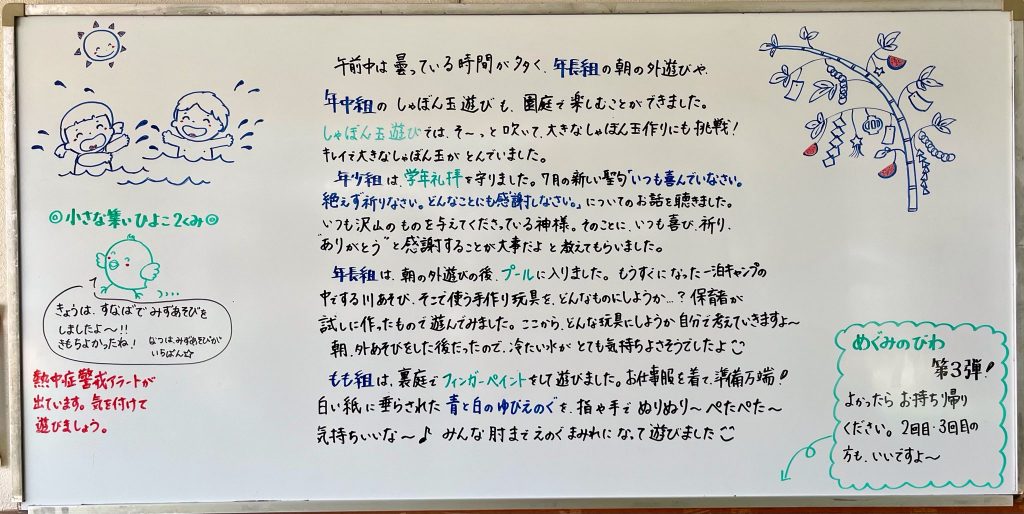 午前中は曇っている時間が多く、年長組の朝の外遊びや、
年中組の しゃぼん玉遊びも、園庭で楽しむことができました。
しゃぼん玉遊びでは、そ〜っと吹いて、大きなしゃぼん玉作りにも挑戦!
キレイで大きなしゃぼん玉が とんでいました。
年少組は、学年礼拝を守りました。7月の新しい聖句「いつも喜んでいなさい。
絶えず祈りなさい。どんなことにも感謝しなさい。」についてのお話を聴きました。
いつも沢山のものを与えてくださっている神様。そのことに、いつも喜び、祈り、
"ありがとう"と感謝することが大事だよ と教えてもらいました。
年長組は、朝の外遊びの後、プールに入りました。もうすぐになった一泊キャンプの
中でする川あそび、そこで使う手作り玩具を、どんなものにしようか…? 保育者が
試しに作ったもので遊んでみました。ここから、どんな玩具にしようか自分で考えていきますよ〜
朝、外あそびをした後だったので、冷たい水が とても気持ちよさそうでしたよ
もも組は、裏庭でフィンガーペイントをして遊びました。お仕事服を着て、準備万端!
白い紙に垂らされた 青と白のゆびえのぐを、指や手で ぬりぬり〜 ぺたぺた〜
気持ちいいな〜♪ みんな肘までえのぐまみれになって遊びました
◎小さな集い ひよこ2くみ◎
きょうは、すなばで みずあそびを
しましたよ〜!!
きもちよかったね!
なつは、みずあそびが
いちばん☆
熱中症警戒アラートが
出ています。気を付けて
遊びましょう。
めぐみのびわ
第3弾!
よかったら お持ち帰り
ください。2回目・3回目の
方も、いいですよ〜